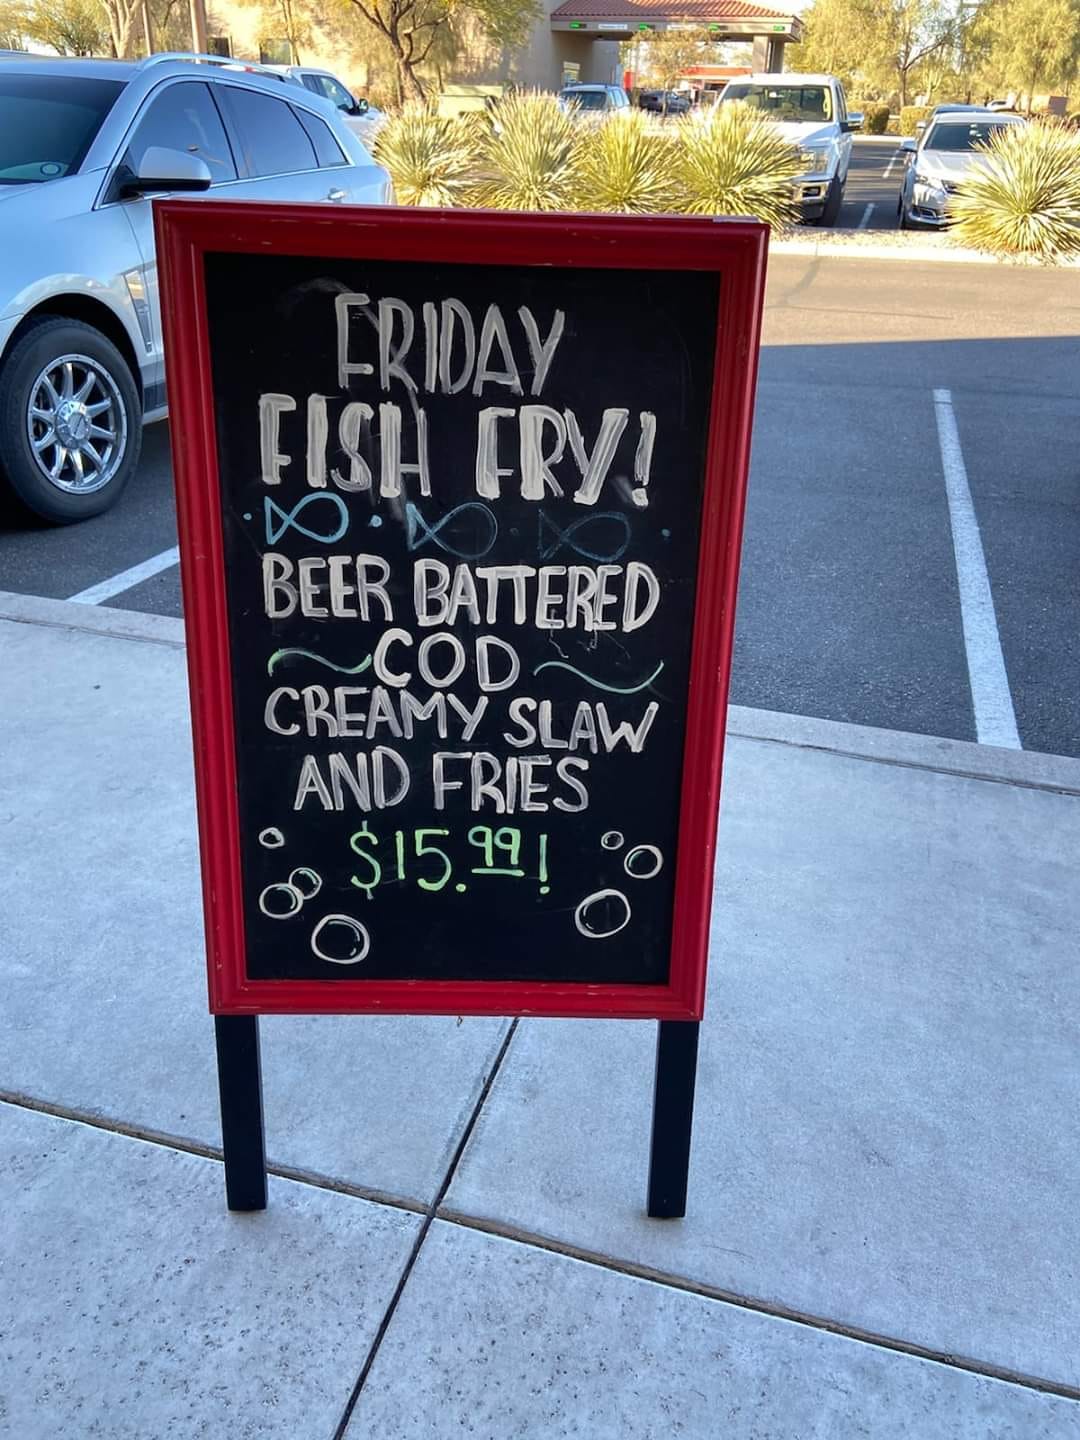 FRIDAY
FISH FRY!
BEER BATTERED
COD
CREAMY SLAW
AND FRIES
$15.99!